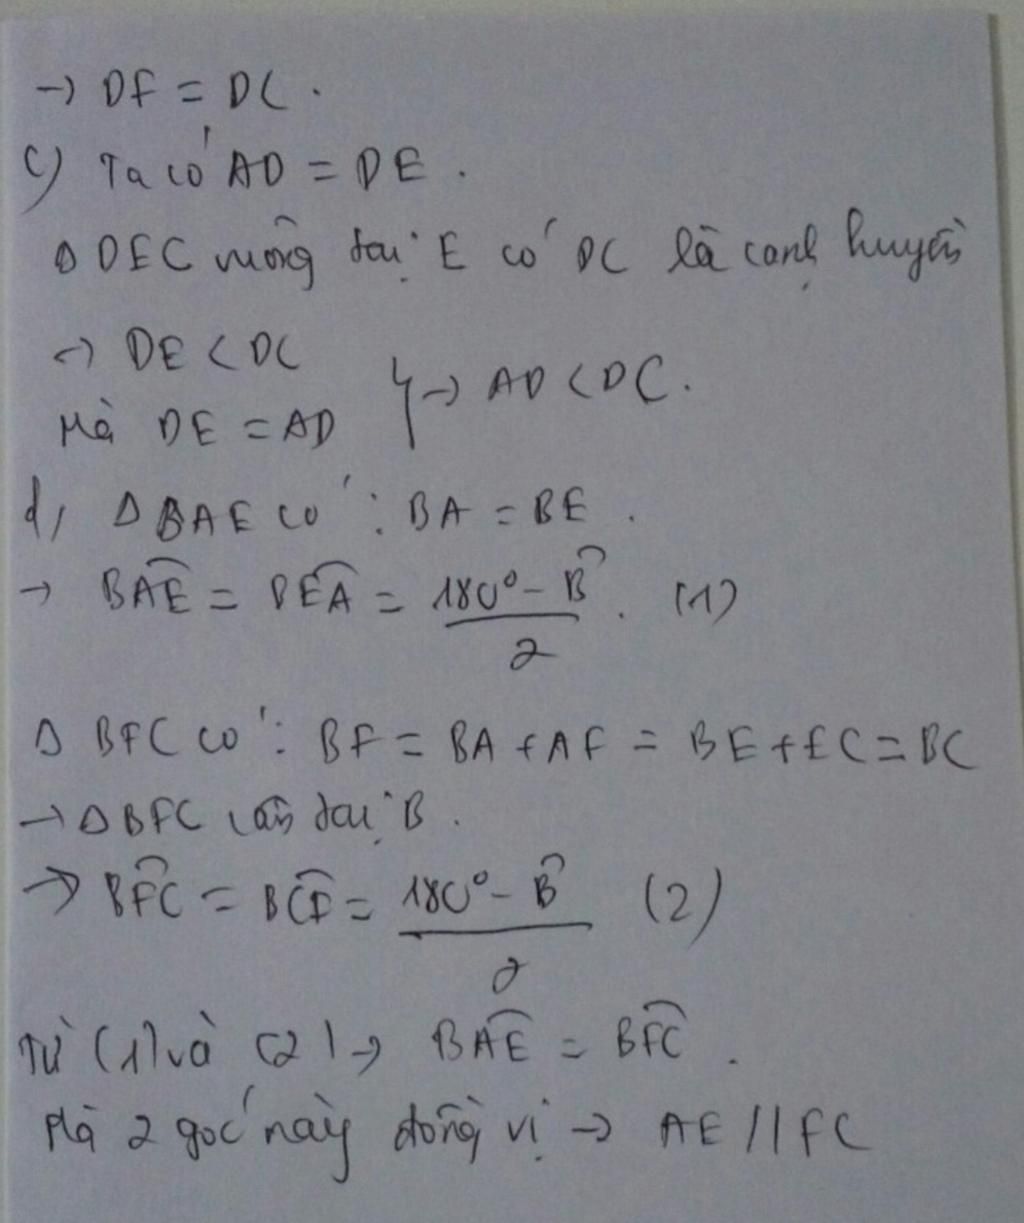 → DF = DC.
c) Ta có AD = DE.
Δ DEC vuông tại E có DC là cạnh huyền
→ DE < DC
Mà DE = AD } → AD < DC.
d, Δ BAE có: BA = BE.
→ BAE^ = BEA^ = (180° - B^)/2. (1)
Δ BFC có: BF = BA + AF = BE + EC = BC
→ Δ BFC cân tại B.
→ BFC^ = BCF^ = (180° - B^)/2 (2)
Từ (1) và (2) → BAE^ = BFC^.
Mà 2 góc này đồng vị → AE // FC